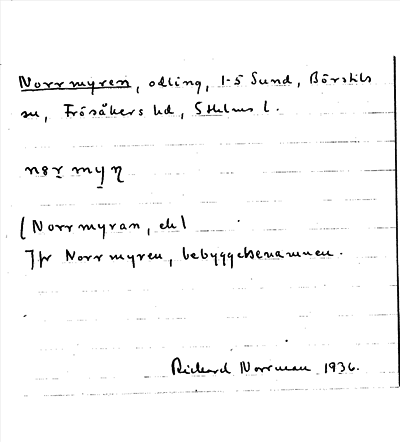 Norrmyren, odling, 1-5 Sund, Börstils
sn, Frösåkers hd, Sthlms l.
nɞr myn̥
(Norrmyran, ek)
Jfr Norrmyren, bebyggelsenamnen.
Rickard Norrman 1936.